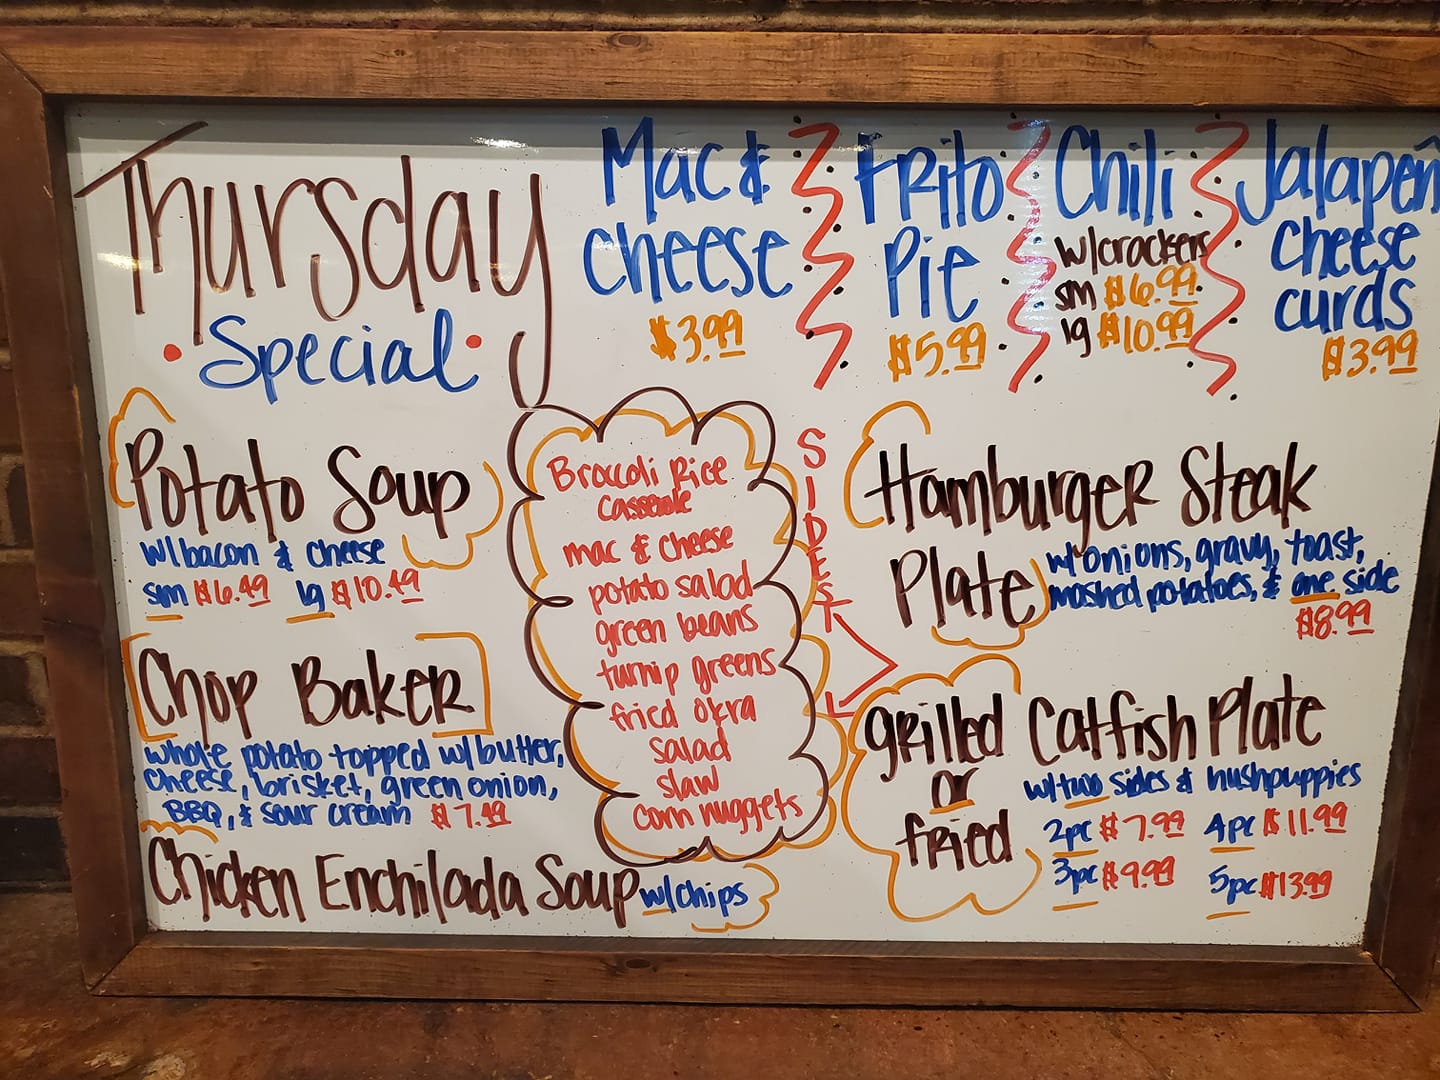 Thursday
Special
Mac &
cheese
$3.99
Frito
Pie
$5.99
Chili
w/crackers
sm $6.99
lg $10.99
Jalapeñ
cheese
curds
$3.99
Potato Soup
w/bacon & cheese
sm $6.49 lg $10.49
Chop Baker
whole potato topped w/butter,
cheese, brisket, green onion,
BBQ, & sour cream $7.49
Chicken Enchilada Soup w/chips
Broccoli Rice
Casserole
mac & cheese
potato salad
green beans
turnip greens
fried okra
salad
slaw
corn nuggets
SIDES
Hamburger Steak
Plate w/onions, gravy, toast,
mashed potatoes, & one side
$8.99
Grilled Catfish Plate
or
fried
w/two sides & hushpuppies
2pc $7.99 4pc $11.99
3pc $9.99 5pc $13.99